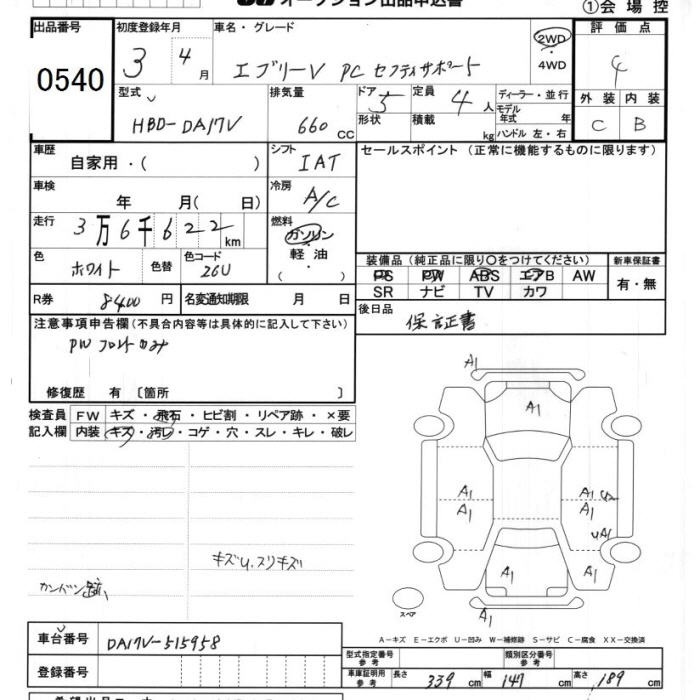 オークション出品申込書
①会場控
出品番号 0540
初度登録年月 3 4月
車名・グレード エブリーV PC セフティサポート
2WD ・ 4WD
評価点 4
外装 C 内装 B
型式 HBD-DA17V
排気量 660 CC
ドア 5 形状
定員 4人 積載 kg
ディーラー・並行
モデル年式 年
ハンドル 左・右
車歴 自家用・( )
シフト IAT
セールスポイント (正常に機能するものに限ります)
車検 年 月( 日)
冷房 A/C
走行 3万6千622km
燃料 ガソリン・軽油・( )
色 ホワイト 色替 色コード 26U
装備品 (純正品に限り○をつけてください)
新車保証書 有・無
PS PW ABS エアB AW
SR ナビ TV カワ
R券 8400円 名変通知期限 月 日
後日品 保証書
注意事項申告欄 (不具合内容等は具体的に記入して下さい)
PW フロントのみ
修復歴 有 〔箇所 〕
検査員記入欄
FW キズ・飛石・ヒビ割・リペア跡・×要
内装 キズ・汚レ・コゲ・穴・スレ・キレ・破レ
A1
A1
A1 A1
A1 A1
UA1
A1 A1
A1
キズU.スリキズ
カンバン跡
スペア
A-キズ E-エクボ U-凹み W-補修跡 S-サビ C-腐食 XX-交換済
車台番号 DA17V-515958
型式指定番号 参考
類別区分番号 参考
登録番号
車庫証明用参考 長さ 339cm 幅 147cm 高さ 189cm